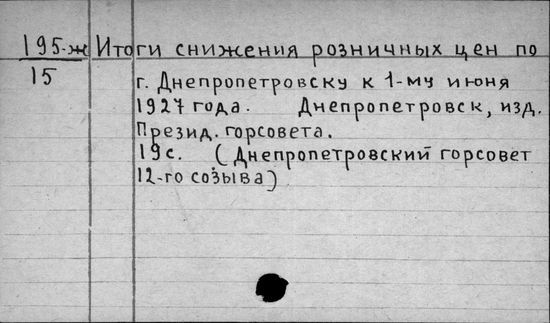 195-ж Итоги снижения розничных цен по
15
г. Днепропетровску к 1-му июня
1927 года. Днепропетровск, изд.
Презид. горсовета.
19с. (Днепропетровский горсовет
12-го созыва)